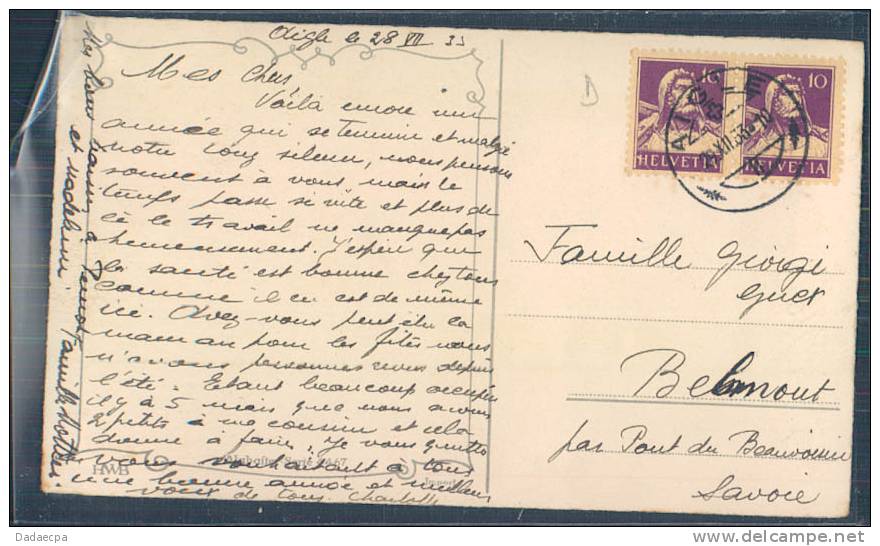 Aigle le 28 VII 33
Mes chers
Voilà encore une
année qui se termine et malgré
notre long silence, nous pensons
souvent à vous, mais le
temps passe si vite et plus de
là le travail ne manque pas
heureusement. J'espère que
la santé est bonne chez vous
comme il en est de même
ici. Avez-vous peut être la
maman pour les fêtes nous
n'avons personnes revus depuis
l'été. Etant beaucoup occupée
il y a 5 mois que nous avons
2 petits à ma cousine et cela
donne à faire. Je vous quitte
vous souhaitant à tous
une bonne année et meilleurs
voeux de tous.
et Madeleine
Famille
HWB
Serie 467
10
HELVETIA
HELVETIA
AIGLE
Famille Giorgi
Belmont
par Pont du Beauvoisin
Savoie
D
Dadaecpa
http://www.delcampe.net